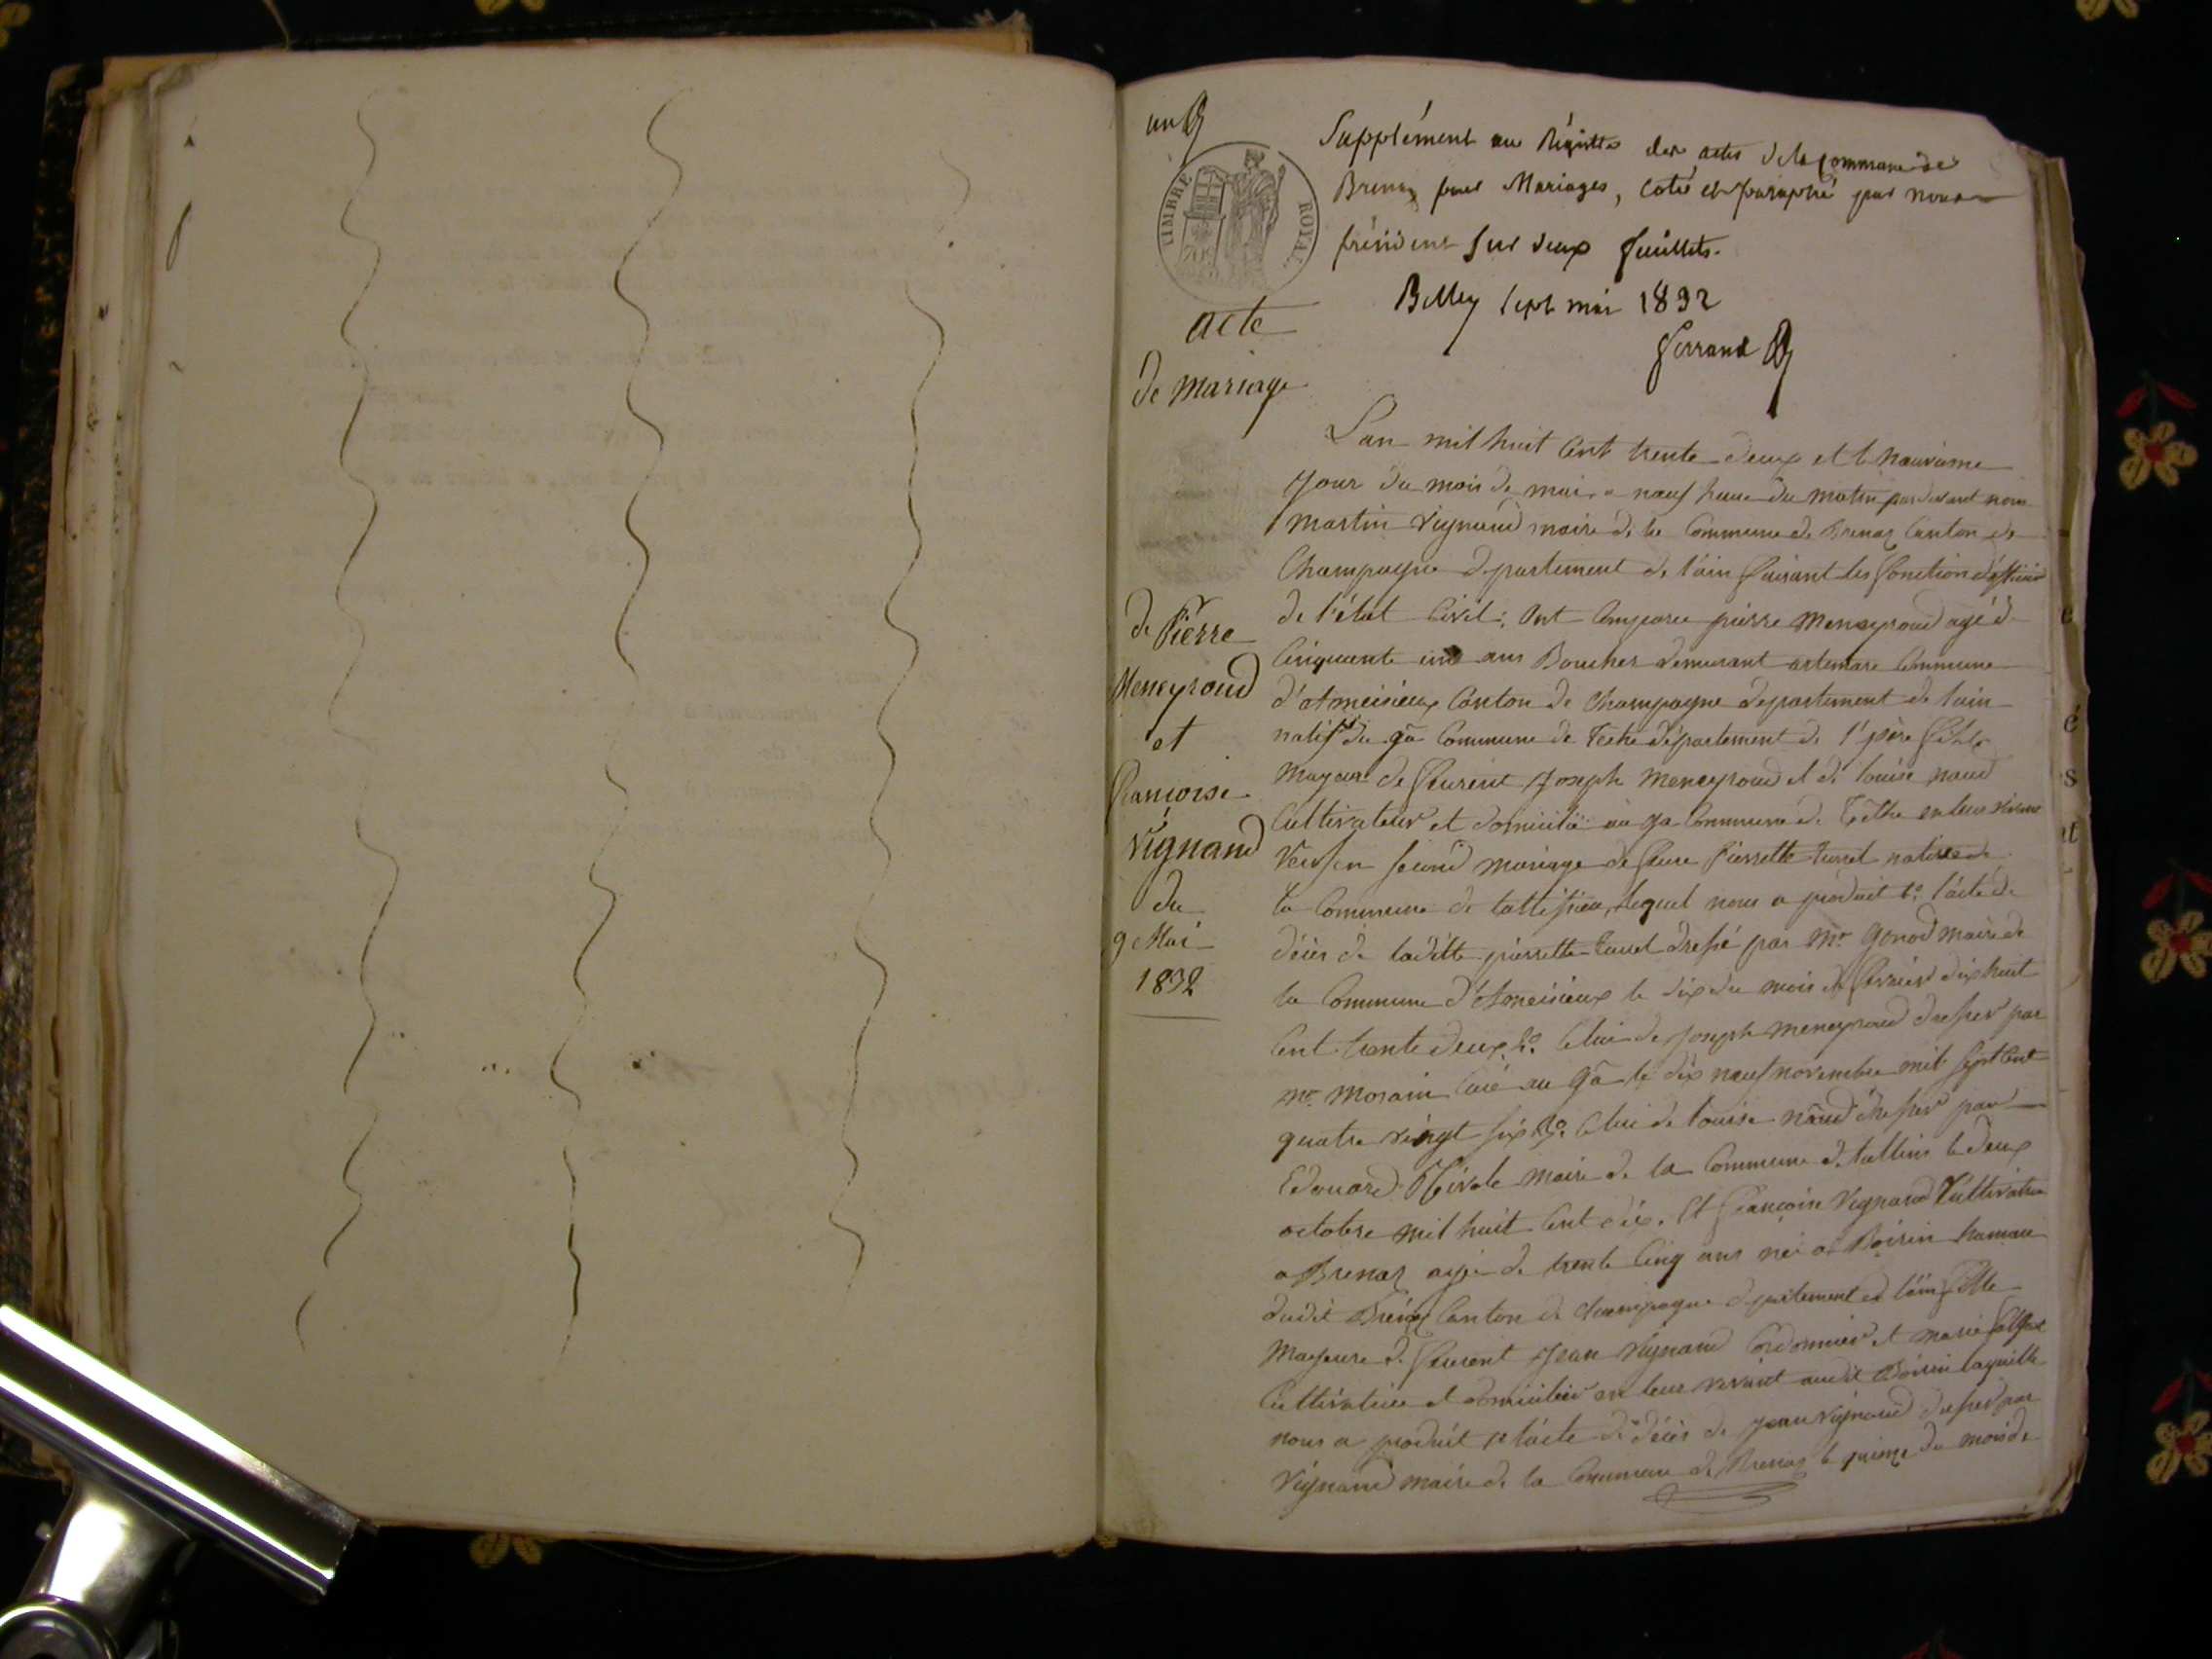 un
Supplément au Régistre des actes de la commune de
Brenaz pour Mariages, coté et paraphé par nous
président sur deux feuillets.
Belley sept mai 1832
Ferrand
TIMBRE ROYAL
acte
de mariage
de Pierre
Meneyroud
et
françoise
Vignand
du
9 Mai
1832
L'an mil huit cent trente deux et le neuvième
jour du mois de mai, a neuf heure du matin pardevant nous
martin Vignand maire de la Commune de Brenaz Canton de
Champagne departement de l'ain faisant les fonction d'officier
de l'état Civil; ont comparu pierre Meneyroud agé de
Cinquante un ans Boucher demeurant artemare Commune
d'Ameisieux Canton de Champagne departement de l'ain
natif du gâ Commune de département de l'isère fils
mageur de feurent Joseph Meneyroud et de louise naud
Cultivateur et domicilié au ga Commune de en leur vivant
Veuf en second mariage de feue Pierrette native de
la Commune de tallissieu, lequel nous a produit 1º. l'acte de
décès de laditte pierrette dressé par Mr gonod maire de
la Commune d'Ameisieux le dix du mois de fevrier dix huit
Cent trente deux, 2º. Celui de Joseph meneyroud dresser par
mr. Morain Curé au gâ le dix neuf novembre mil sept Cent
quatre vingt six, 3º. Celui de louise naud dresser par
Edouard maire de la Commune de tullins le deux
octobre mil huit Cent dix. Et françoise Vignand Cultivatrice
a Brenaz agée de trente Cinq ans née a Boirin hameau
dudit Brénaz Canton de Champagne departement de l'ain fille
Majeure de feurent Jean Vignand Cordonnier et marie
Cultivatrice et domicilier en leur vivant audit Boirin laquelle
nous a produit 1º l'acte de décès de Jean Vignand dresser par
Vignand maire de la Commune de Brenaz le quinze du mois de